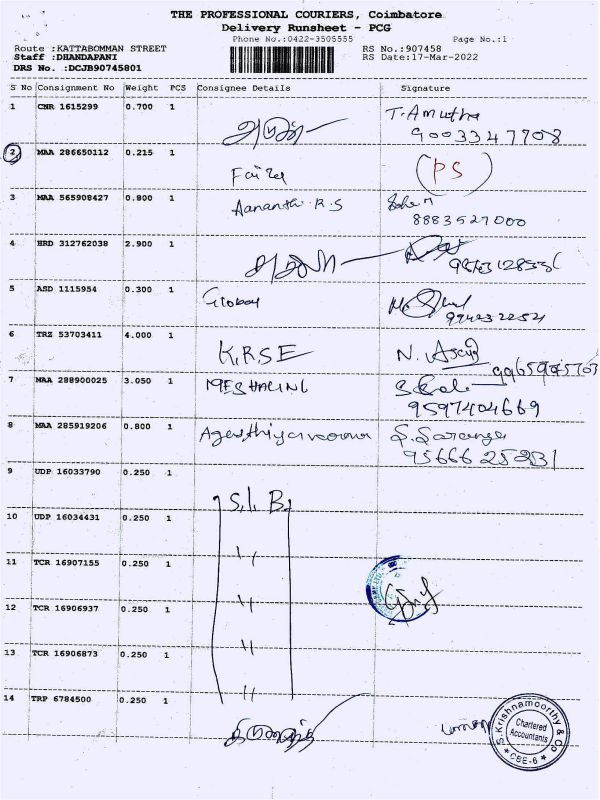 THE PROFESSIONAL COURIERS, Coimbatore
Delivery Runsheet - PCG
Phone No.:0422-3505555
Page No.:1
Route :KATTABOMMAN STREET
RS No.:907458
Staff :DHANDAPANI
RS Date:17-Mar-2022
DRS No. :DCJB90745801
S No Consignment No Weight PCS Consignee Details Signature
1 CNR 1615299 0.700 1 T. Amutha
9003347708
2 MAA 286650112 0.215 1 (PS)
3 MAA 565908427 0.800 1 Aananthi R.S
8883527000
4 HRD 312762038 2.900 1
5 ASD 1115954 0.300 1 Global
6 TRZ 53703411 4.000 1 K.R.S.E
7 MAA 288900025 3.050 1
9597404669
8 MAA 285919206 0.800 1
9 UDP 16033790 0.250 1 S.I.B.
10 UDP 16034431 0.250 1 "
11 TCR 16907155 0.250 1 "
12 TCR 16906937 0.250 1 "
13 TCR 16906873 0.250 1 "
14 TRP 6784500 0.250 1 "
S.Krishnamoorthy & Co
Chartered
Accountants
CBE-6